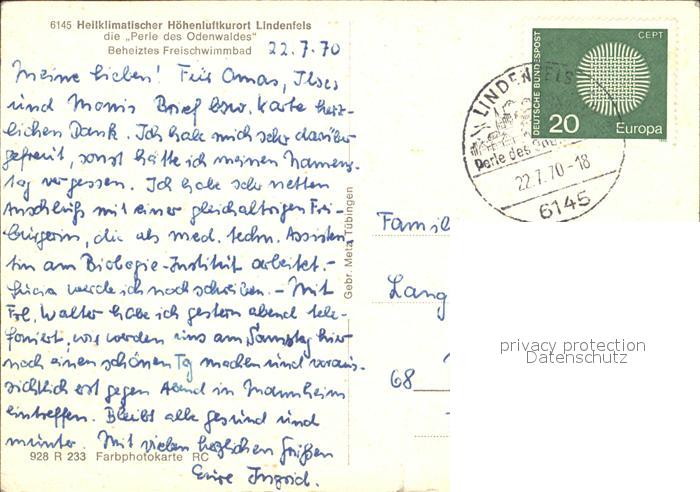 6145 Heilklimatischer Höhenluftkurort Lindenfels
die „Perle des Odenwaldes"
Beheiztes Freischwimmbad
22.7.70
Meine Lieben! Für Omas, Ilses
und Monis Brief bzw. Karte herz-
lichen Dank. Ich habe mich sehr darüber
gefreut, sonst hätte ich meinen Namens-
tag vergessen. Ich habe sehr netten
Anschluß mit einer gleichaltrigen Frei-
burgerin, die als med. techn. Assisten-
tin am Biologie-Institut arbeitet.-
Lucia werde ich noch schreiben. - Mit
Frl. Walter habe ich gestern abend tele-
foniert, wir werden uns am Samstag hier
noch einen schönen Tg machen und voraus-
sichtlich erst gegen Abend in Mannheim
eintreffen. Bleibt alle gesund und
munter. Mit vielen herzlichen Grüßen
Eure Ingrid.
928 R 233 Farbphotokarte RC
Gebr. Metz, Tübingen
CEPT
DEUTSCHE BUNDESPOST
20 Europa
LINDENFELS
Perle des
22.7.70-18
6145
Famil
Lang
68
privacy protection
Datenschutz